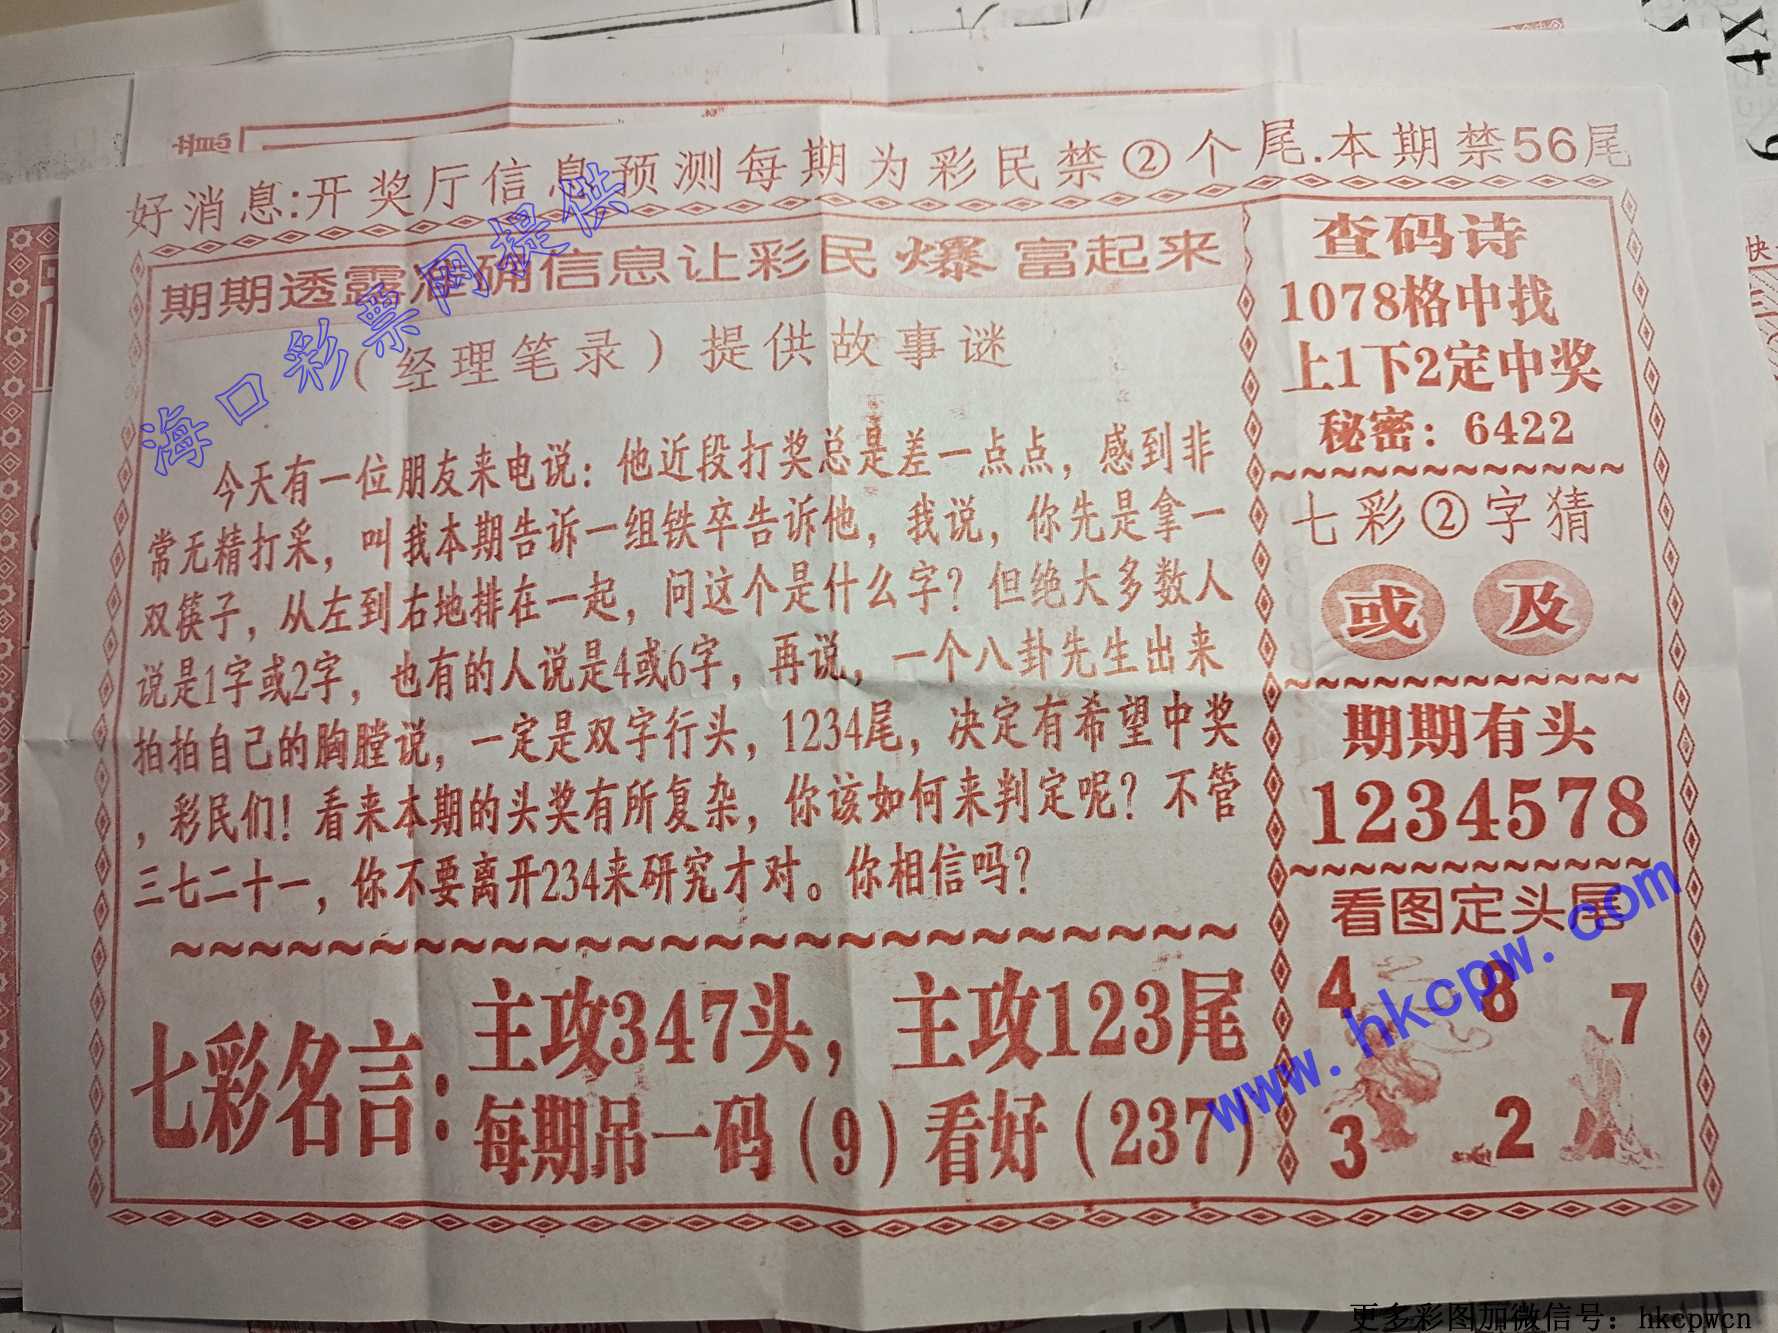 好消息:开奖厅信息预测每期为彩民禁②个尾.本期禁56尾
期期透露准确信息让彩民爆富起来
(经理笔录)提供故事谜
今天有一位朋友来电说：他近段打奖总是差一点点，感到非
常无精打采，叫我本期告诉一组铁卒告诉他，我说，你先是拿一
双筷子，从左到右地排在一起，问这个是什么字？但绝大多数人
说是1字或2字，也有的人说是4或6字，再说，一个八卦先生出来
拍拍自己的胸膛说，一定是双字行头，1234尾，决定有希望中奖
，彩民们！看来本期的头奖有所复杂，你该如何来判定呢？不管
三七二十一，你不要离开234来研究才对。你相信吗？
七彩名言：
主攻347头，主攻123尾
每期吊一码(9)看好(237)
查码诗
1078格中找
上1下2定中奖
秘密：6422
七彩②字猜
或 及
期期有头
1234578
看图定头尾
4 8 7
3 2
海口彩票网提供
www.hkcpw.com
更多彩图加微信号：hkcpwcn